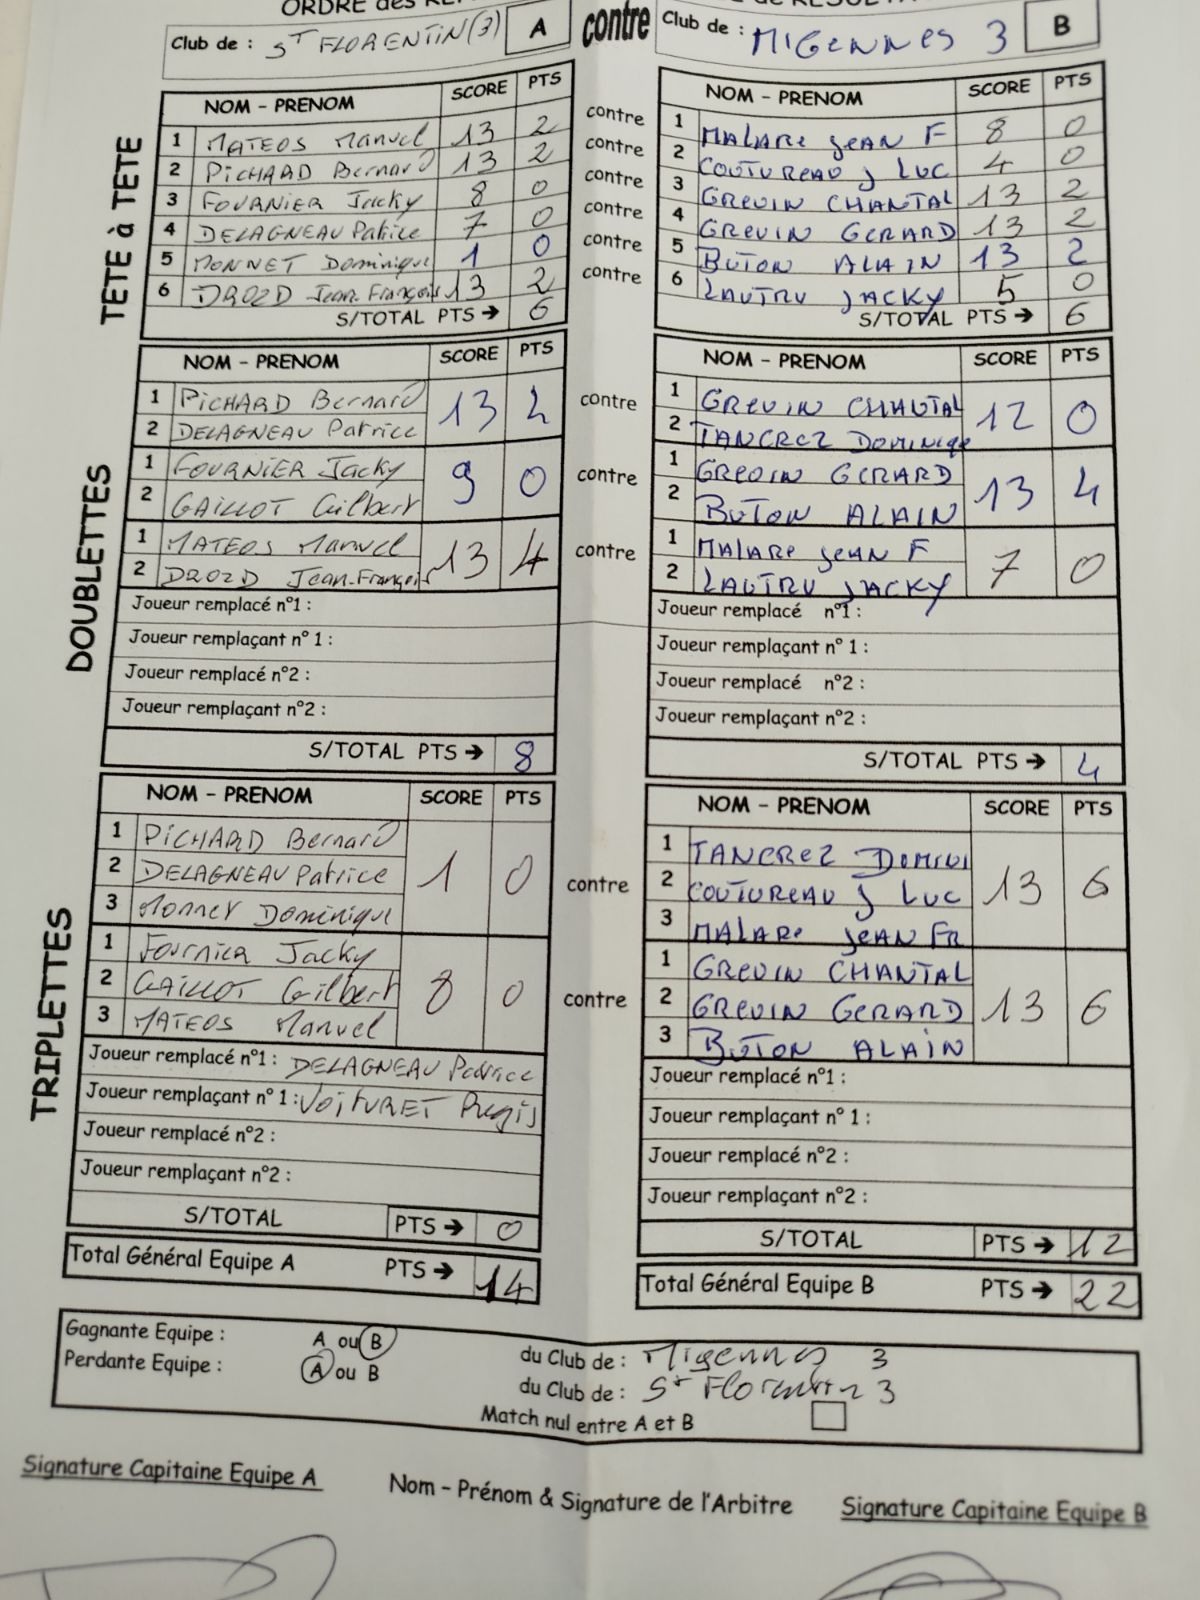 ORDRE des
Club de : ST FLORENTIN (3) A contre Club de : MIGENNES 3 B
TETE à TETE
NOM - PRENOM SCORE PTS contre NOM - PRENOM SCORE PTS
1 MATEOS Manuel 13 2 contre 1 MALARE JEAN F 8 0
2 PICHARD Bernard 13 2 contre 2 COUTUREAU J LUC 4 0
3 FOURNIER Jacky 8 0 contre 3 GREVIN CHANTAL 13 2
4 DELAGNEAU Patrice 7 0 contre 4 GREVIN GERARD 13 2
5 MONNET Dominique 1 0 contre 5 BUTON ALAIN 13 2
6 DROZD Jean-François 13 2 6 LAUTRU JACKY 5 0
S/TOTAL PTS → 6 S/TOTAL PTS → 6
DOUBLETTES
NOM - PRENOM SCORE PTS NOM - PRENOM SCORE PTS
1 PICHARD Bernard 13 4 contre 1 GREVIN CHANTAL 12 0
2 DELAGNEAU Patrice 2 TANCREZ Dominique
1 FOURNIER Jacky 9 0 contre 1 GREVIN GERARD 13 4
2 GAILLOT Gilbert 2 BUTON ALAIN
1 MATEOS Manuel 13 4 contre 1 MALARE JEAN F 7 0
2 DROZD Jean-François 2 LAUTRU JACKY
Joueur remplacé n°1 : Joueur remplacé n°1 :
Joueur remplaçant n° 1 : Joueur remplaçant n° 1 :
Joueur remplacé n°2 : Joueur remplacé n°2 :
Joueur remplaçant n°2 : Joueur remplaçant n°2 :
S/TOTAL PTS → 8 S/TOTAL PTS → 4
TRIPLETTES
NOM - PRENOM SCORE PTS NOM - PRENOM SCORE PTS
1 PICHARD Bernard 1 0 contre 1 TANCREZ Domini 13 6
2 DELAGNEAU Patrice 2 COUTUREAU J LUC
3 Monnet Dominique 3 MALARE JEAN FR
1 Fournier Jacky 8 0 contre 1 GREVIN CHANTAL 13 6
2 GAILLOT Gilbert 2 GREVIN GERARD
3 MATEOS Manuel 3 BUTON ALAIN
Joueur remplacé n°1 : DELAGNEAU Patrice Joueur remplacé n°1 :
Joueur remplaçant n° 1 : VOITURET Régis Joueur remplaçant n° 1 :
Joueur remplacé n°2 : Joueur remplacé n°2 :
Joueur remplaçant n°2 : Joueur remplaçant n°2 :
S/TOTAL PTS → 0 S/TOTAL PTS → 12
Total Général Equipe A PTS → 14 Total Général Equipe B PTS → 22
Gagnante Equipe : A ou B du Club de : Migennes 3
Perdante Equipe : A ou B du Club de : St Florentin 3
Match nul entre A et B
Signature Capitaine Equipe A Nom - Prénom & Signature de l'Arbitre Signature Capitaine Equipe B